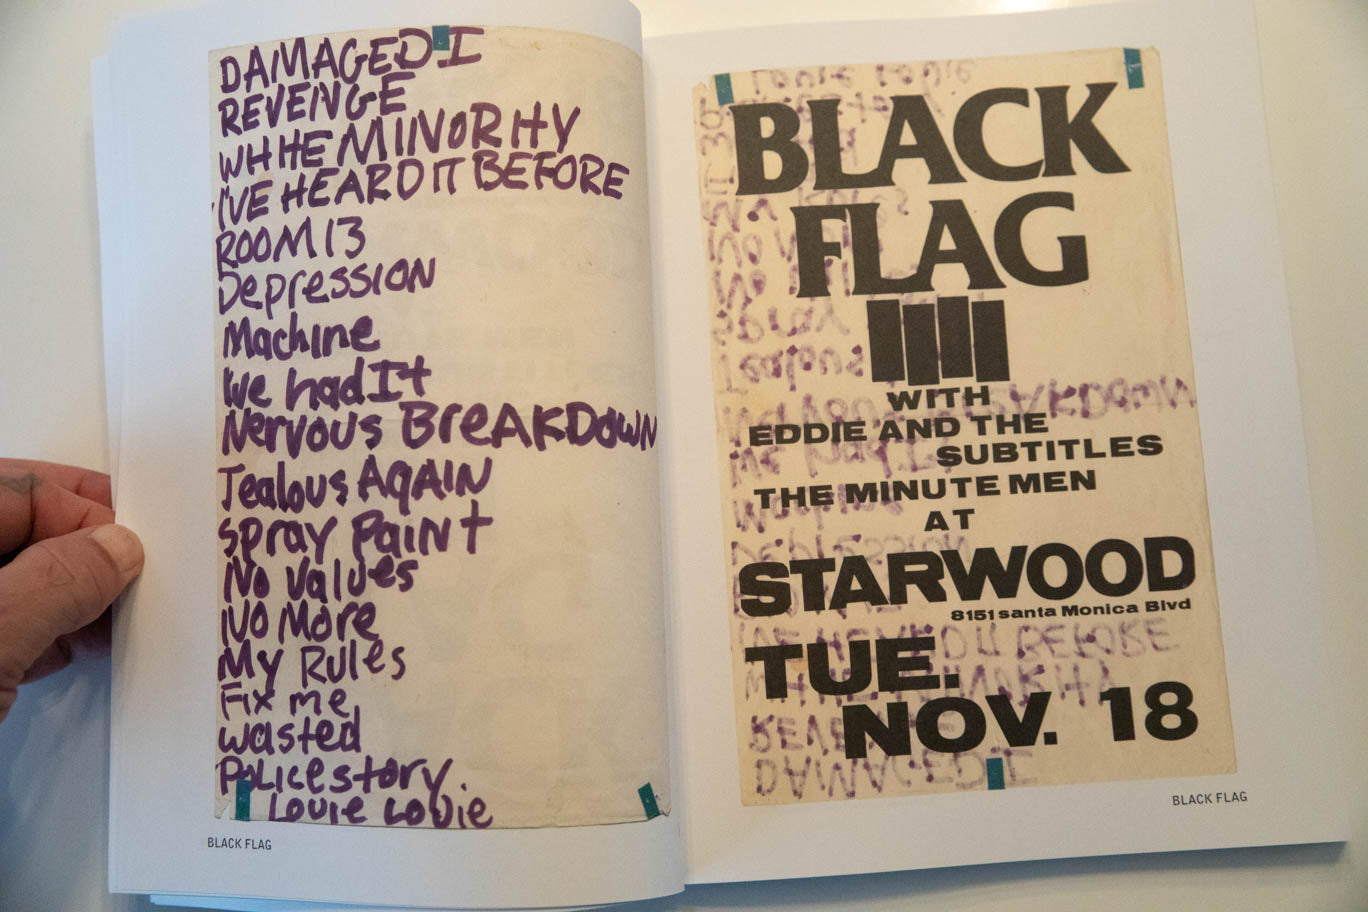 DAMAGED I
REVENGE
WHITE MINORITY
I'VE HEARD IT BEFORE
ROOM 13
Depression
Machine
We had It
Nervous BreAKDOWN
Jealous AgAIN
Spray PaiNt
No Values
No More
My Rules
Fix me
wasted
Police story.
Louie Louie
BLACK FLAG
BLACK
FLAG
WITH
EDDIE AND THE
SUBTITLES
THE MINUTE MEN
AT
STARWOOD
8151 santa Monica Blvd
TUE.
NOV. 18
BLACK FLAG